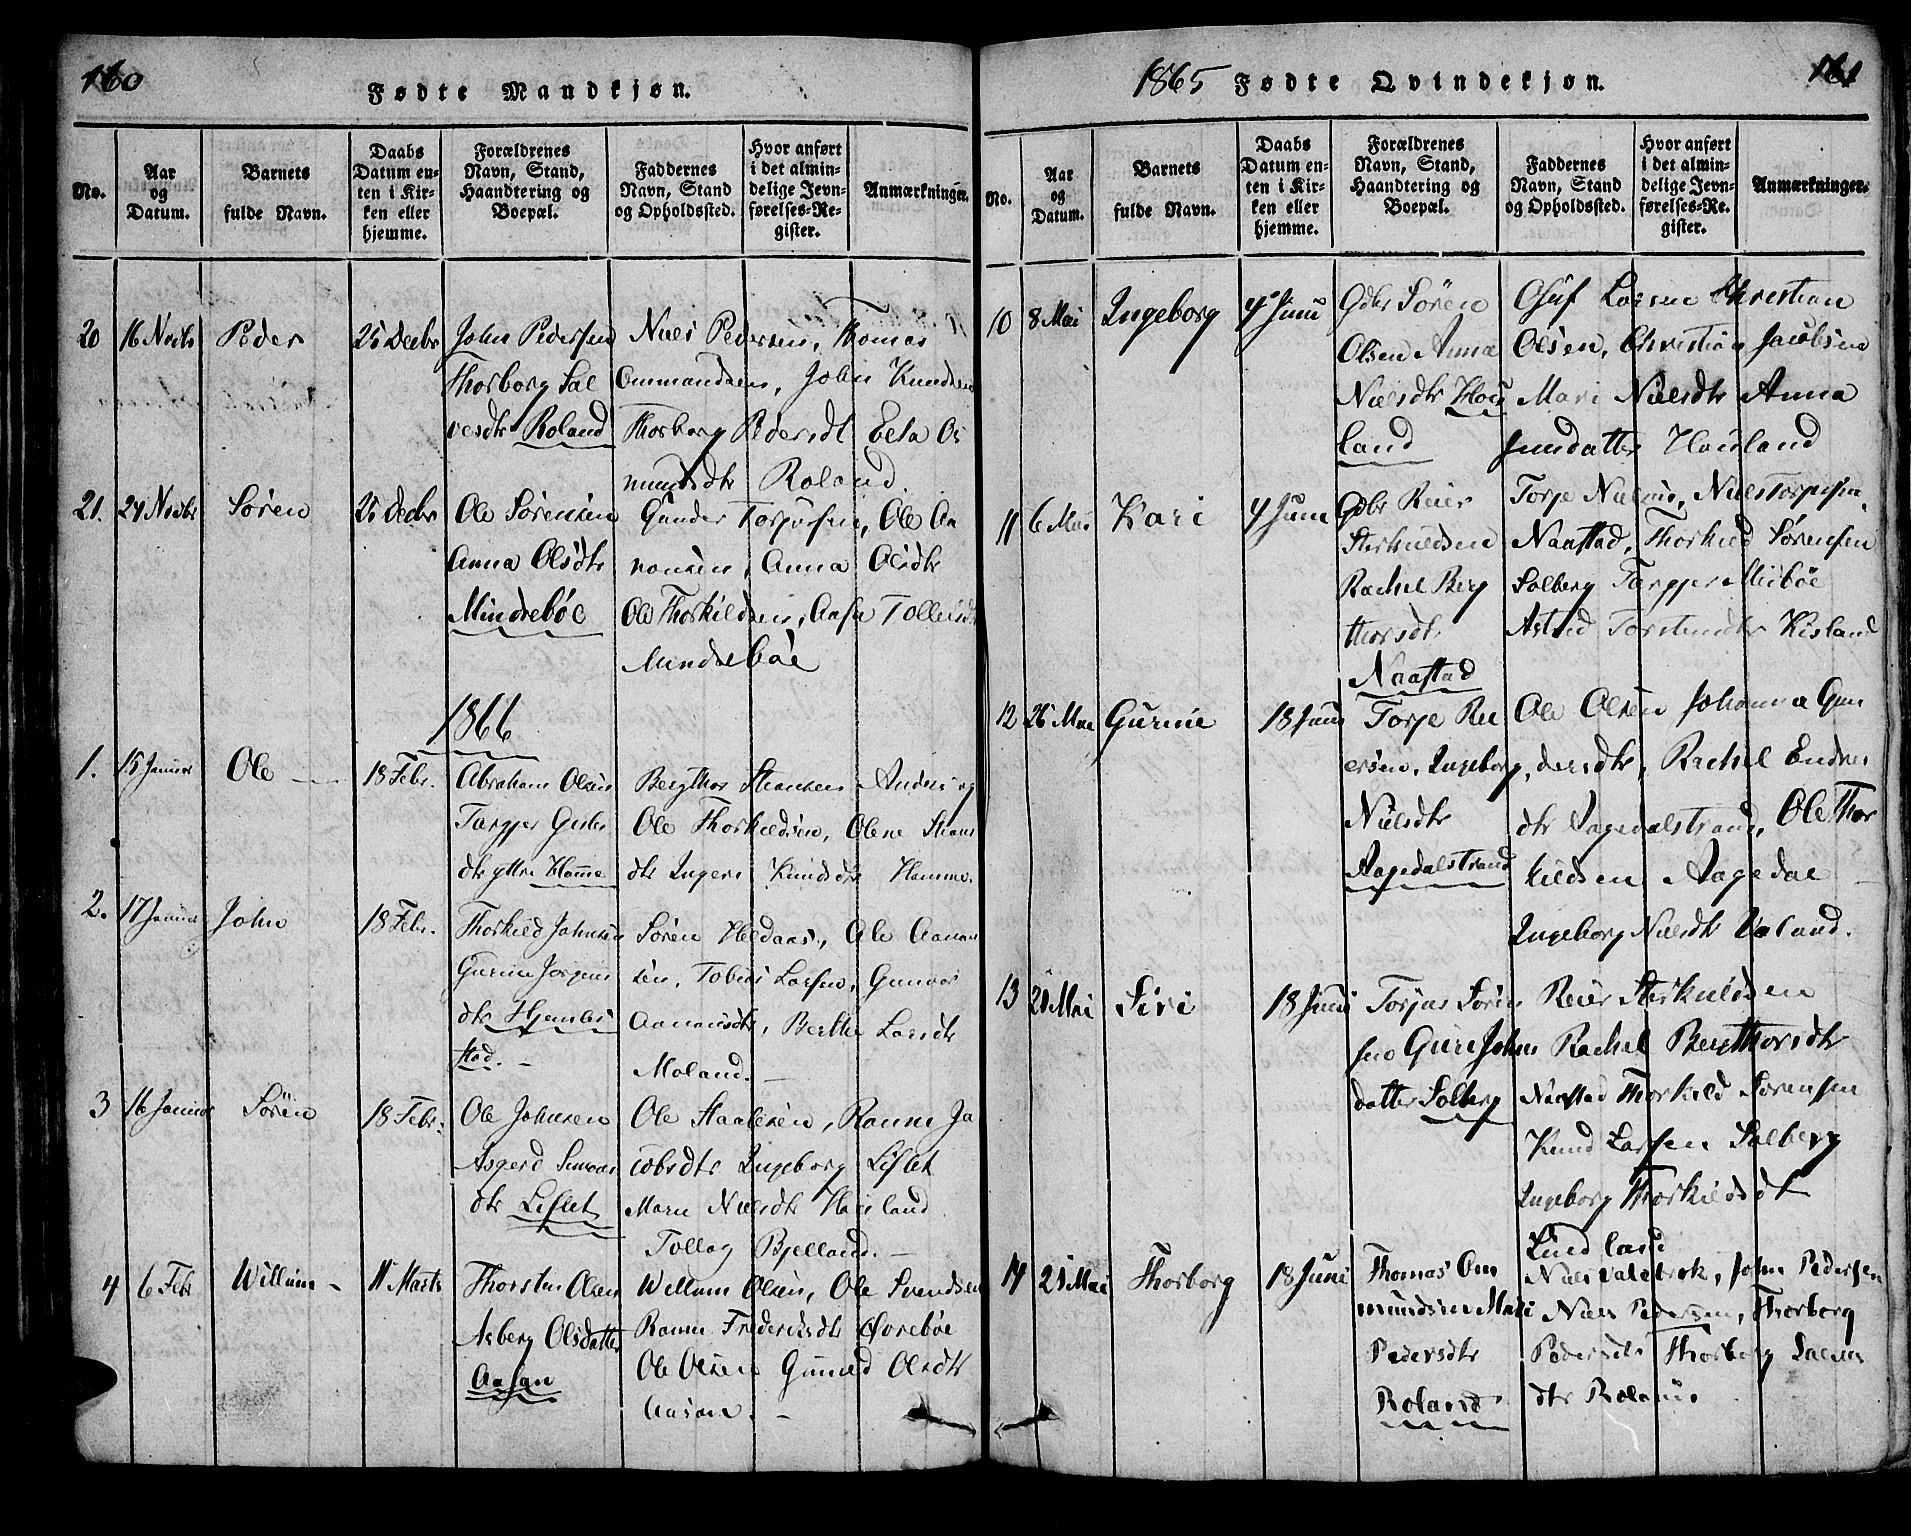 160
Fødte Mandkjøn.
No.
Aar og Datum.
Barnets fulde Navn.
Daabs Datum enten i Kirken eller hjemme.
Forældrenes Navn, Stand, Haandtering og Boepæl.
Faddernes Navn, Stand og Opholdssted.
Hvor anført i det almindelige Jevnførelses-Register.
Anmærkninger.
20 16 Novbr Peder 25 Decbr
John Pedersen
Thorborg Sal
vesdtr Roland
Niels Pedersen, Thomas
Ommundsen, John Knudsen
Thorborg Pedersdt Eeta Os
mundsdtr Roland.
21. 24 Novbr Søren 25 Decbr
Ole Sørensen
Anna Olsdtr
Mindrebøe
Gunder Torjusen, Ole Aa
nonsen, Anna Olsdtr
Ole Thorkildsen, Aase Tollevsdtr
Mindrebøe
1866
1. 15 Januar Ole 18 Febr.
Abraham Olsen
Targjer
dtr yttre Homme
Bergthor
Ole Thorkildsen, Olene
dtr Ingeri Knudsdtr Homme.
2. 17 Januar John 18 Febr.
Thorkild Johnsen
Gurine Jørgens
dtr Hjemle
stad.
Søren Heldaas, Ole Aanon
sen, Tobias Larsen, Gunvor
Aanonsdtr, Berthe Larsdtr
Moland.
3 16 Januar Søren 18 Febr.
Ole Johnsen
Asgerd Simons
dtr Lislet
Ole Staalesen, Ranni Ja
cobsdtr Ingeborg Lislet
Marie Nielsdtr Houland
Tollag Bjelland.
4 6 Febr Willum 11 Marts
Thorsten Olsen
Asberg Olsdatter
Aasan
Willum Olsen, Ole Svendsen
Ranni Frederiksdtr Øvrebøe
Ole Olsen Gunild Olsdtr
Aasan.
161
1865 Fødte Qvindekjøn.
No.
Aar og Datum.
Barnets fulde Navn.
Daabs Datum enten i Kirken eller hjemme.
Forældrenes Navn, Stand, Haandtering og Boepæl.
Faddernes Navn, Stand og Opholdssted.
Hvor anført i det almindelige Jevnførelses-Register.
Anmærkninger.
10 8 Mai Ingeborg 4 Juni
Gdbr Søren
Olsen Anna
Nielsdtr Hous
land
Oluf Larsen Christian
Olsen, Christian Jacobsen
Mari Nielsdtr Anna
Jensdatter Housland
11 6 Mai Kari 4 Juni
Gdbr Reier
Sterkuldsen
Rachel Berg
thorsdtr
Naastad
Torje Nielsen, Niels Torjusen
Naastad, Thorkild Sørensen
Solberg Targjer Meebøe
Astrid Torstendtr Kisland
12 26 Mai Gurine 18 Juni
Torje Rei
ersen, Ingeborg
Nielsdtr
Aagedalstrand
Ole Olsen Johanna Gun
dersdtr, Rachel Endres
dtr Aagedalstrand, Ole Thor
kildsen Aagedal
Ingeborg Nielsdtr Valand.
13 20 Mai Siri 18 Juni
Torjus Søren
sen Guri Johns
datter Solberg
Reier Sterkuldsen
Rachel Bergthorsdtr
Naastad Thorkild Sørensen
Knud Larsen Solberg
Ingeborg Thorkildsdt
Lindland
14 21 Mai Thorborg 18 Juni
Thomas Om
mundsen Mari
Pedersdtr
Roland
Niels Valebrok, John Pedersen
Niels Pedersen, Thorborg
Pedersdtr Thorborg Salves
dtr Roland.